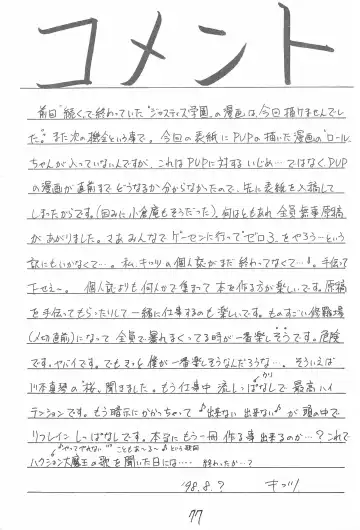 コメント
前回"続く"で終わっていた"ジャスティス学園"の漫画は、今回描けませんでし
た。また次の機会という事で。今回の表紙にPVPの描いた漫画の"ロール"
ちゃんが入っていないんですが、これはPVPに対するいじめ…ではなくPVP
の漫画が直前までどうなるか分からなかったので、先に表紙を入稿して
しまったからです。(因みに小倉庵もそうだった)。何はともあれ全員無事原稿
があがりました。さあみんなでゲーセンに行って"ゼロ3"をやろうーという
訳にもいかなくて…。私、キッツの個人誌がまだ終わってなくて…。手伝って
下せえ〜。個人誌よりも何人かで集まって本を作る方が楽しいです。原稿
を手伝ってもらったりして一緒に仕事するのも楽しいです。ものすごい修羅場
(〆切直前)になって全員で暴れまくってる時が一番楽しそうです。危険
です。ヤバイです。でもきっと僕が一番楽しそうなんだろうな…。そういえば
川本真琴の"桜"聞きました。もう仕事中流しっぱなしで最高ハイ
テンションです。もう暗示にかかっちゃって♪出来ない出来ない♪が頭の中で
リフレインしっぱなしです。本当にもう一冊作る事出来るのか…?これで
"やってやれない"ことも あ〜る〜♪という歌詞
ハクション大魔王の歌を聞いた日には…。終わったか…?
'98.8.?
キッツ
77